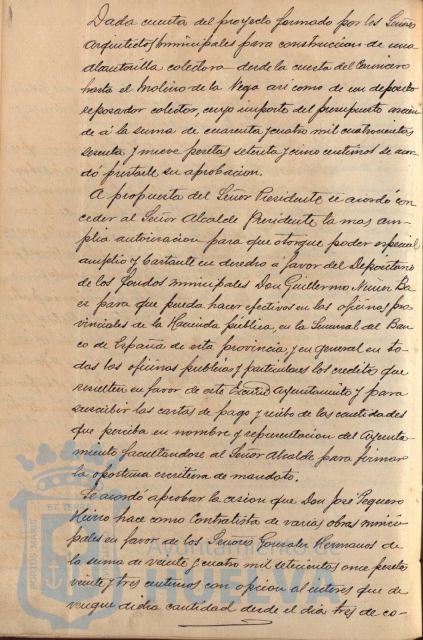 Dada cuenta del proyecto formado por los Señores
Arquitectos municipales para construccion de una
alcantarilla colectora desde la cuesta del Carnicero
hasta el Molino de la Vega asi como de un deposito
reposador colector, cuyo importe del presupuesto ascien-
de á la suma de cuarenta y cuatro mil cuatrocientas
sesenta y nueve pesetas setenta y cinco centimos se acor-
dó prestarle su aprobacion.
A propuesta del Señor Presidente se acordó con-
ceder al Señor Alcalde Presidente la mas am-
plia autorizacion para que otorgue poder especial
amplio y bastante en derecho a favor del Depositario
de los fondos municipales Don Guillermo Nuñez Ba
ez para que pueda hacer efectivos en las oficinas pro-
vinciales de la Hacienda pública, en la Sucursal del Ban-
co de España de esta provincia y en general en to-
das las oficinas publicas y particulares los creditos que
resulten en favor de este Excmo Ayuntamiento y para
suscribir las cartas de pago y recibo de las cantidades
que perciba en nombre y representacion del Ayunta-
miento facultandose al Señor Alcalde para firmar
la oportuna escritura de mandato.
Se acordo aprobar la cesion que Don José Peguero
hace como Contratista de varias obras munici-
pales en favor de los Señores Gonzalez Hermanos de
la suma de veinte y cuatro mil setecientas once pesetas
veinte y tres centimos con opcion al interes que de-
vengue dicha cantidad desde el dia tres de co-
Ayuntamiento de
HUELVA
PORTUS MARIS